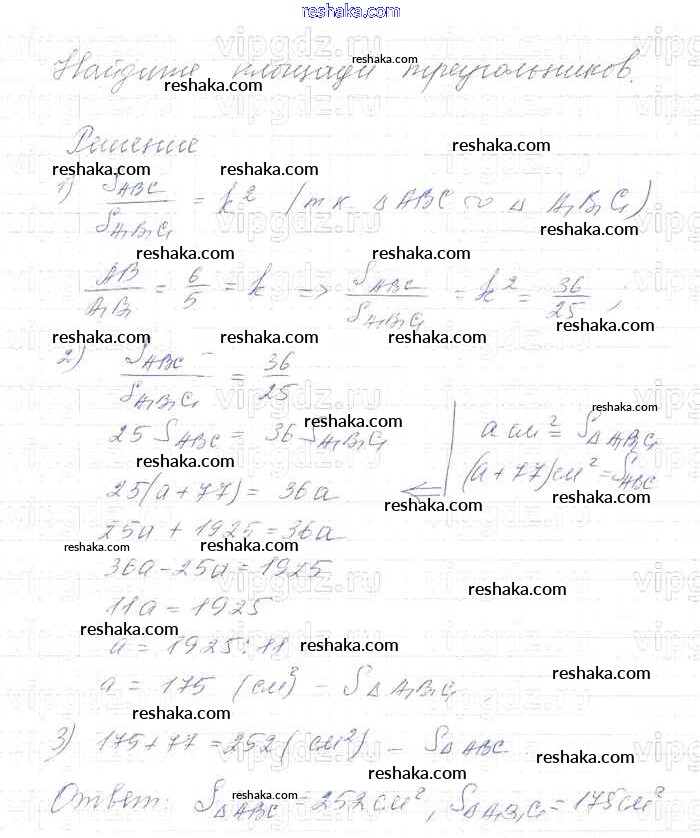 reshaka.com
Найдите площади треугольников.
Решение
1) S_ABC / S_A₁B₁C₁ = k² (т.к. △ABC ∾ △A₁B₁C₁)
AB / A₁B₁ = 6/5 = k => S_ABC / S_A₁B₁C₁ = k² = 36/25 ;
2) S_ABC / S_A₁B₁C₁ = 36/25
25 S_ABC = 36 S_A₁B₁C₁
a см² = S_△A₁B₁C₁
(a+77) см² = S_ABC
25(a+77) = 36a
25a + 1925 = 36a
36a - 25a = 1925
11a = 1925
a = 1925 : 11
a = 175 (см²) - S_△A₁B₁C₁
3) 175+77 = 252 (см²) - S_△ABC
Ответ: S_△ABC = 252 см², S_△A₁B₁C₁ = 175 см²